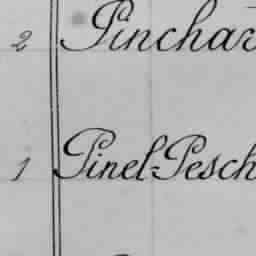 2 Pinchar
1 Pinel-Pesch